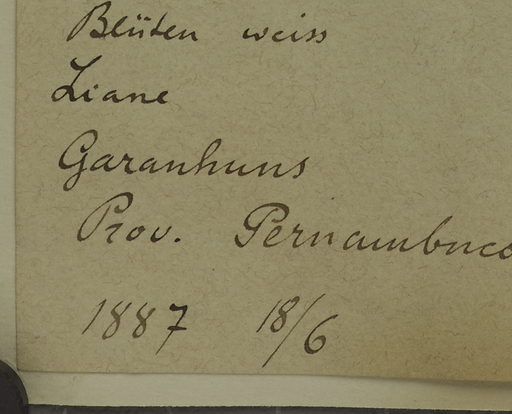 Blüten weiss
Liane
Garanhuns
Prov. Pernambuco
1887 18/6